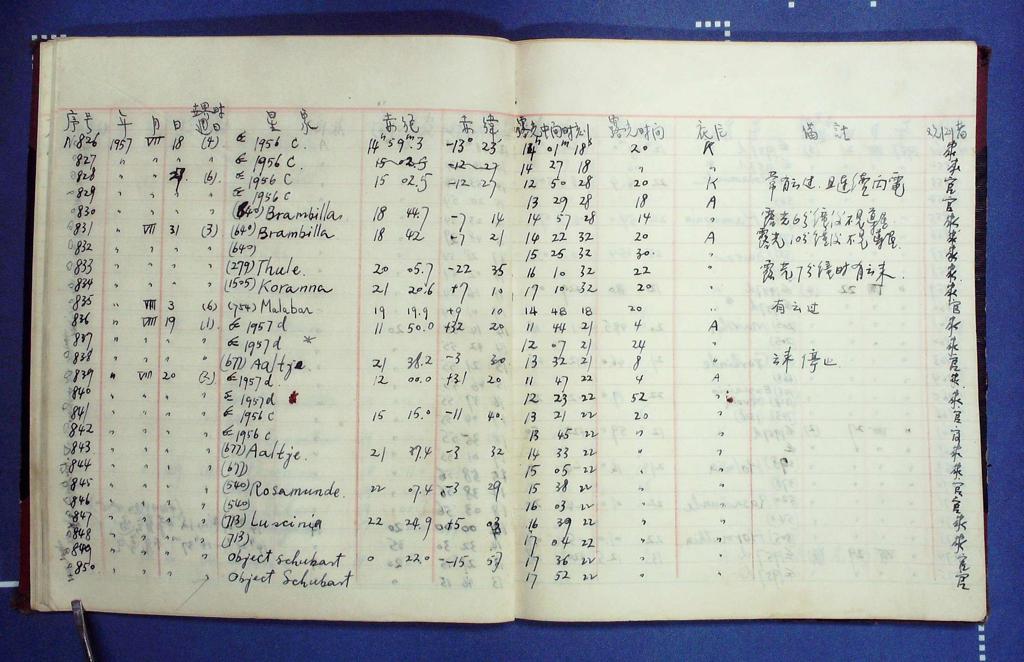 序号 年 月 日 世界时週日 星象 赤经 赤緯 露光中间时刻 露光时间 底片 備註 观测者
№826 1957 Ⅶ 18 (4) ☄ 1956 c. 14ʰ 59ᵐ.3 -13° 23 14ʰ 01ᵐ 18ˢ 20 K
827 " " " " ☄ 1956 C. 15 02.5 -12 27 14 27 18 " "
828 " " (6) ☄ 1956 C 15 02.5 -12 27 12 50 28 20 K
829 " " " " ☄ 1956 C 13 29 28 18 A
830 " " " " (640) Brambilla 18 44.7 -7 14 14 57 28 14 "
831 " Ⅶ 31 (3) (640) Brambilla 18 42 -7 21 14 22 32 20 A
832 " " " " (640) 15 25 32 30 "
833 " " " " (279) Thule. 20 05.7 -22 35 16 10 32 22 "
834 " " " " (1505) Koranna 21 20.6 +7 10 17 10 32 20 "
835 " Ⅷ 3 (6) (754) Malabar 19 19.9 +9 10 14 48 18 20 " 有云过
836 " Ⅷ 19 (1) ☄ 1957 d 11 50.0 +32 20 11 44 21 4 A
837 " " " " ☄ 1957 d * 12 07 21 24 "
838 " " " " (677) Aaltje 21 38.2 -3 30 13 32 21 8 " 云来停止
839 " Ⅷ 20 ☄ 1957 d 12 00.0 +31 20 11 47 22 4 A
840 " " " " ☄ 1957 d * 12 23 22 52 "
841 " " " " ☄ 1956 C 15 15.0 -11 40 13 21 22 20 "
842 " " " " ☄ 1956 c 13 45 22 " "
843 " " " " (677) Aaltje. 21 37.4 -3 32 14 33 22 " "
844 " " " " (677) 15 05 22 " "
845 " " " " (540) Rosamunde. 22 07.4 -3 29 15 38 22 " "
846 " " " " (540) 16 03 22 " "
847 " " " " (713) Luscinia 22 24.9 +5 16 39 22 " "
848 " " " " (713) 17 04 22 " "
849 " " " " Object Schubart 0 22.0 -15 57 17 36 22 " "
850 " " " " Object Schubart 17 52 22 " "